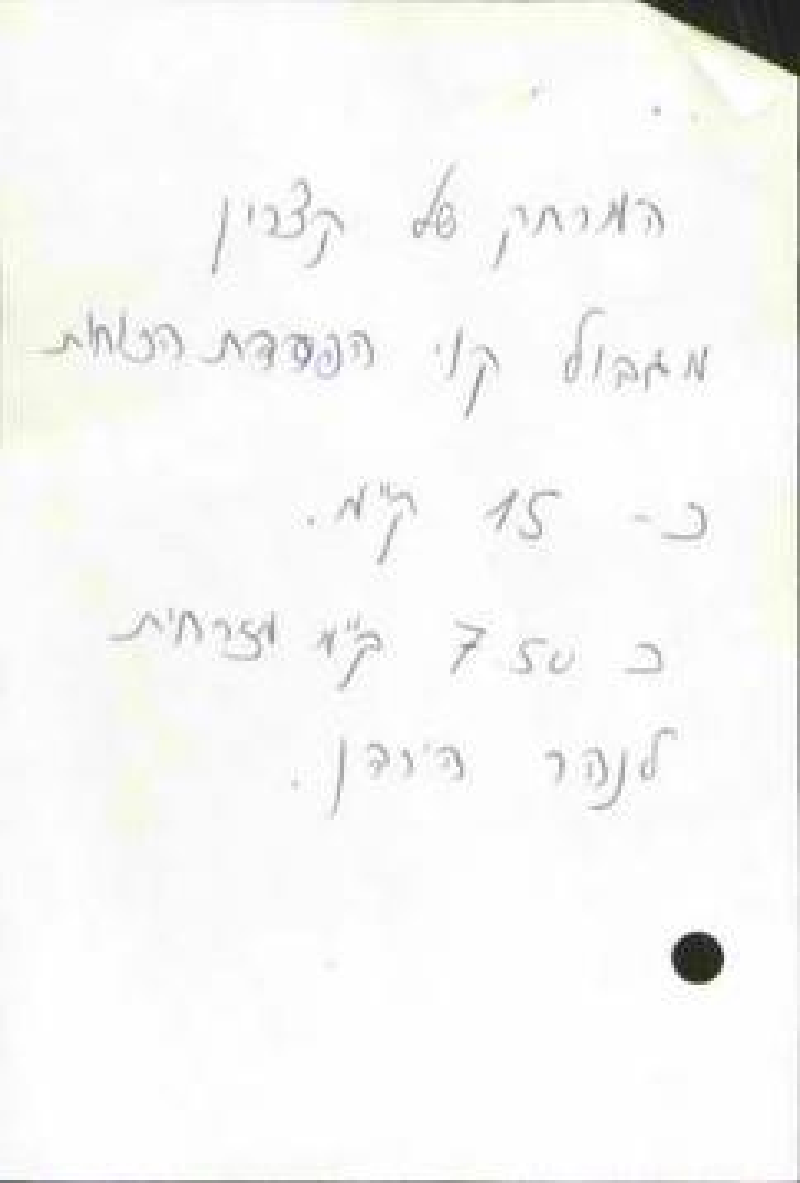 המרחק של קצרין
מגבול קוי הפסדת הכוחות
כ- 15 ק"מ.
כ 7.50 ק"מ מזרחית
לנהר הירדן.